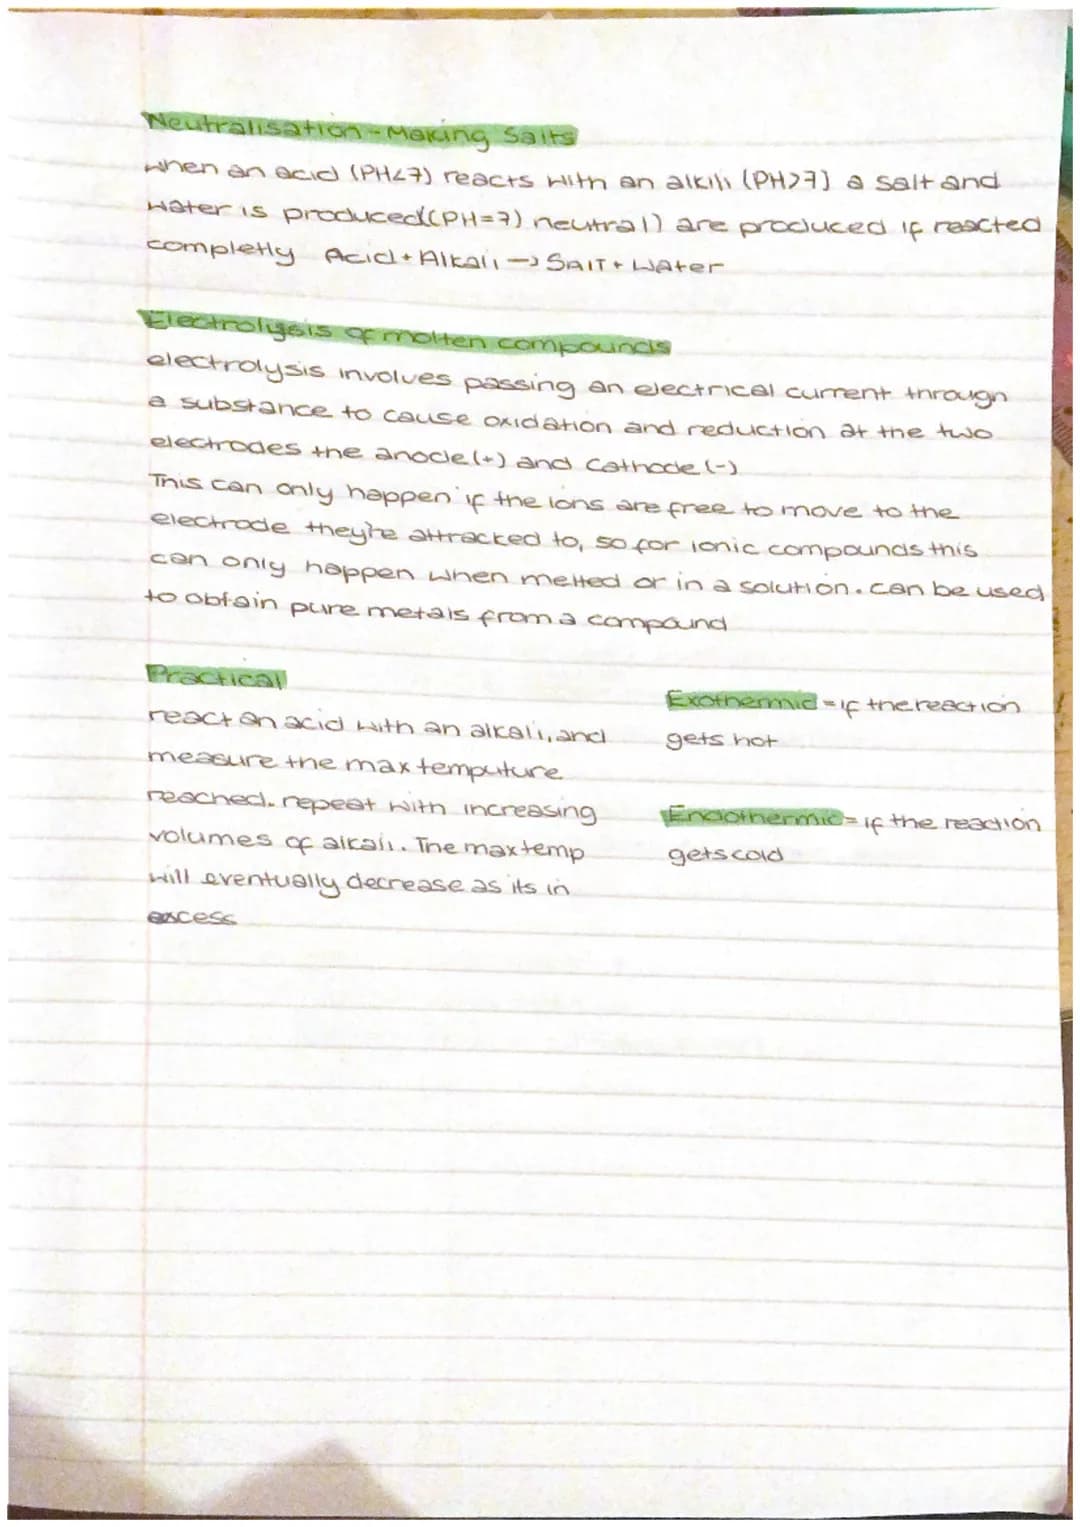 Neutralisation - Making Salts
when an acid (PH<7) reacts with an alkili (PH>7) a salt and
water is produced((PH=7) neutral) are produced if reacted
completly Acid + Alkali → Salt + Water
Electrolysis of molten compounds
electrolysis involves passing an electrical current through
a substance to cause oxidation and reduction at the two
electrodes the anode (+) and Cathode (-)
This can only happen if the ions are free to move to the
electrode they're attracked to, so for ionic compounds this
can only happen when melted or in a solution. can be used
to obtain pure metals from a compound
Practical
react an acid with an alkali, and
measure the max temputure
reached. repeat with increasing
volumes of alkali. The max temp
will eventually decrease as its in
excess
Exothermic = if the reaction
gets hot
Endothermic = if the reaction
gets cold